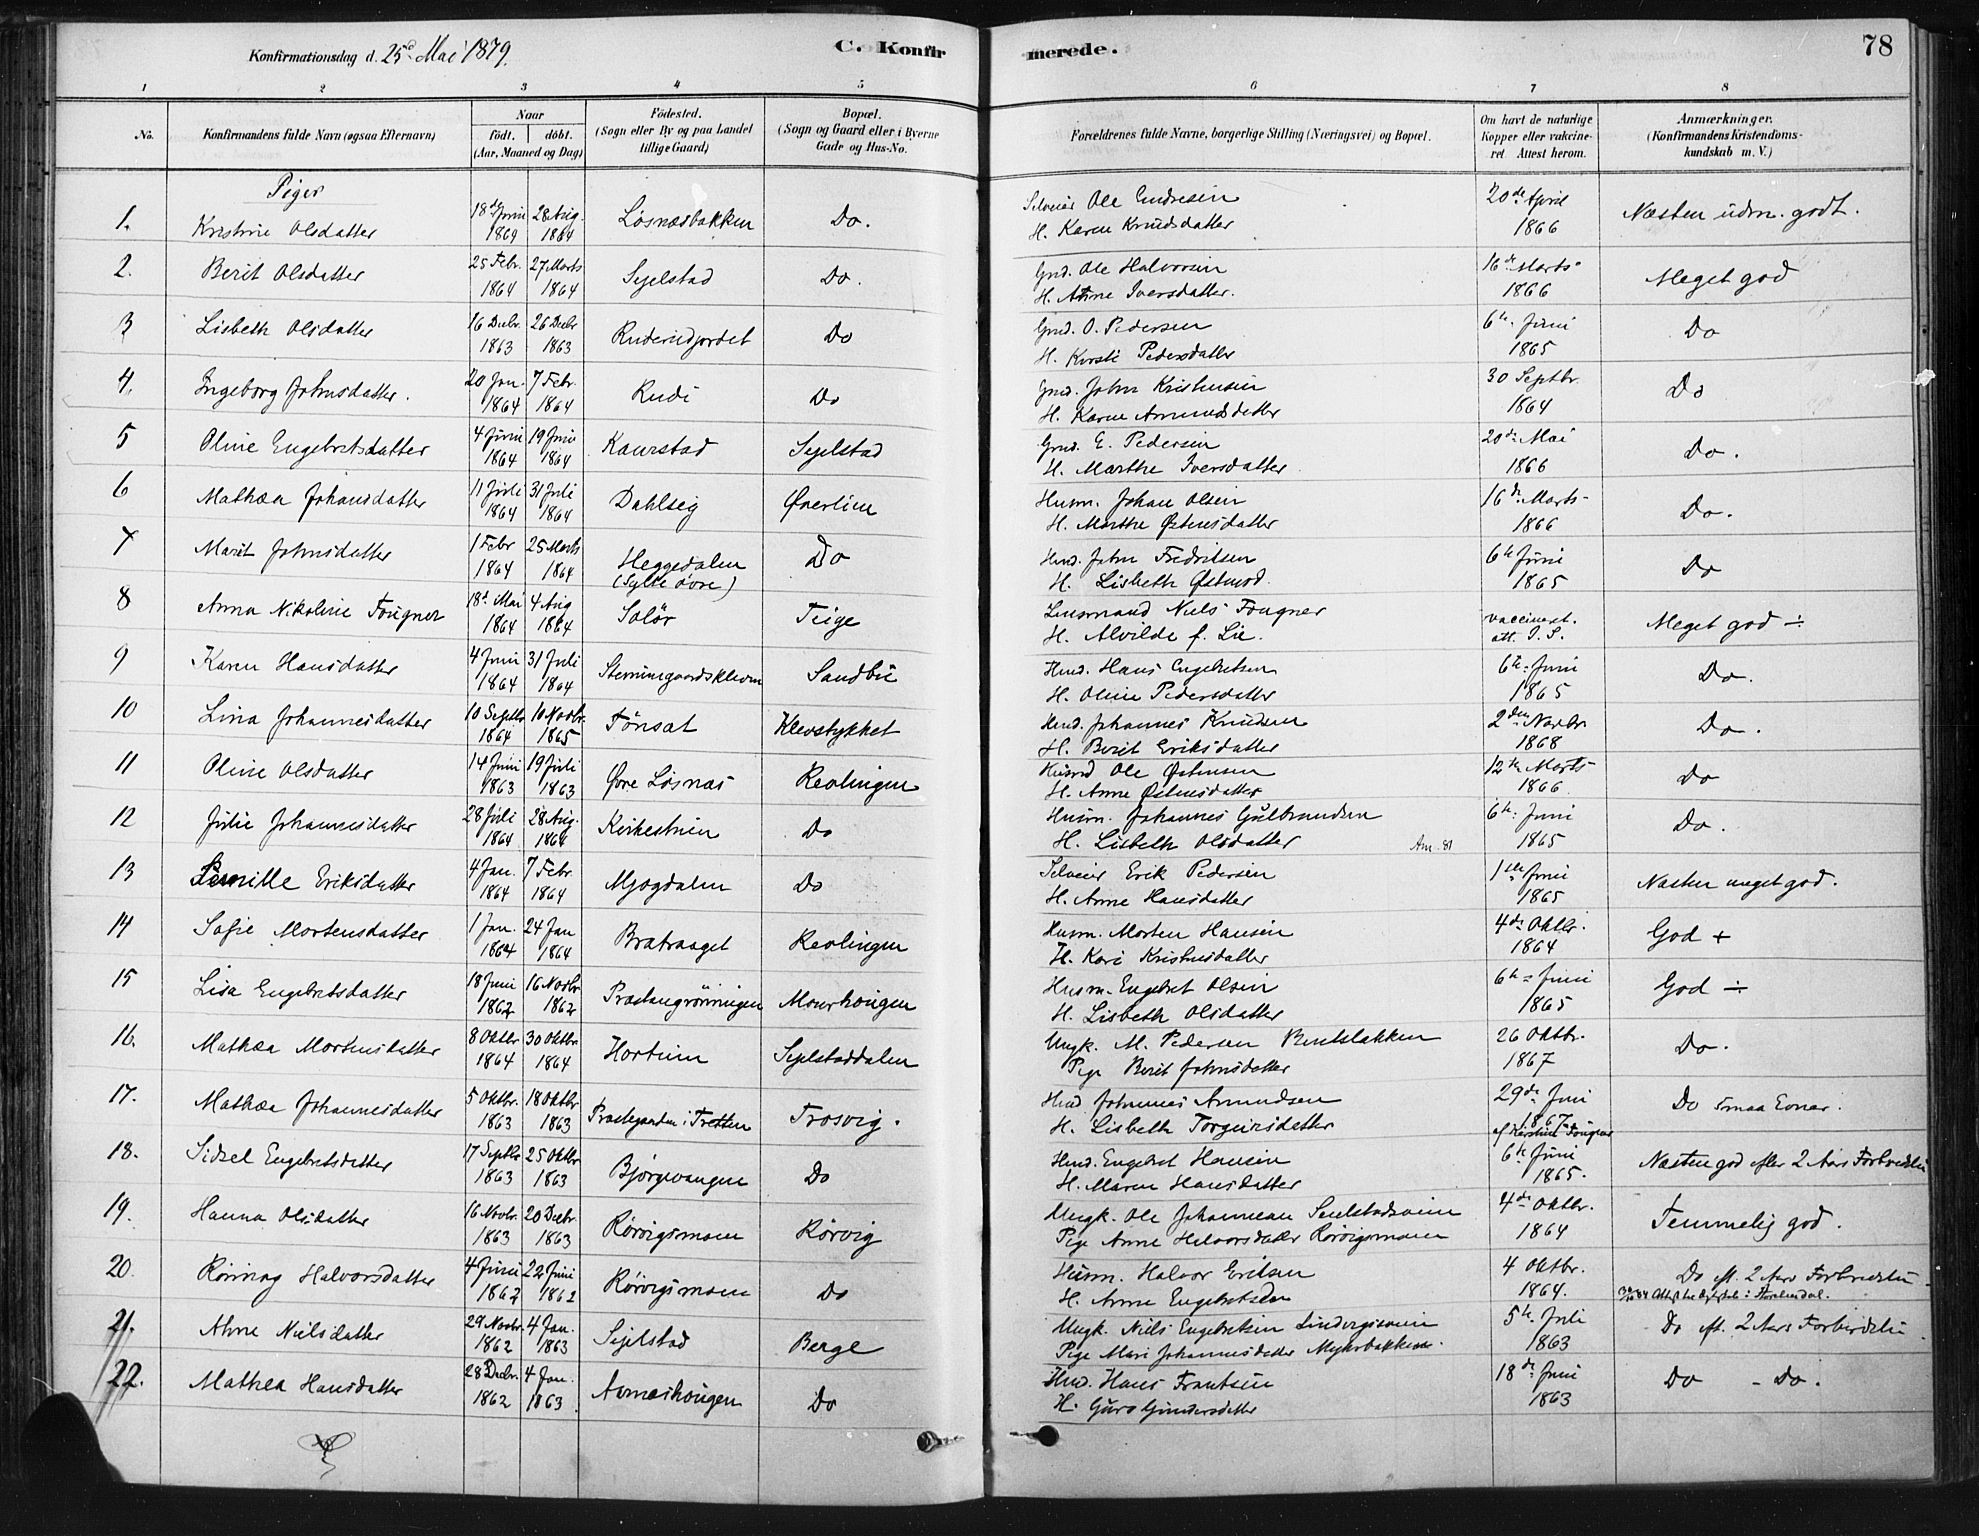 Konfirmationsdag d. 25de Mai 1879.
C. Konfirmerede.
78
1 2 3 4 5 6 7 8
No. Konfirmandens fulde Navn (ogsaa Efternavn) Naar født. døbt. (Aar, Maaned og Dag) Fødested. (Sogn eller By og paa Landet tillige Gaard) Bopæl. (Sogn og Gaard eller i Byerne Gade og Hus-No. Forældrenes fulde Navne, borgerlige Stilling (Næringsvei) og Bopæl. Om havt de naturlige Kopper eller vakcineret Attest herom. Anmærkninger. (Konfirmandens Kristendomskundskab m. V.)
Piger
1. Kristine Olsdatter 18de Juni 1864 28 Aug. 1864 Løsnæsbakken Do. Selveier Ole Endresen H. Karen Knudsdatter 20de April 1866 Næsten udm. godt.
2. Berit Olsdatter 25 Febr. 1864 27 Marts 1864 Sejelstad Do. Grd. Ole Halvorsen H. Anne Iversdatter. 16de Marts 1866 Meget god
3 Lisbeth Olsdatter 16 Decbr. 1863 26 Decbr 1863 Do Grd. O. Pedersen H. Kirsti Pedersdatter 6te Juni 1865 Do
4. Ingeborg Johnsdatter. 20 Jan. 1864 7 Febr. 1864 Rudi Do Grd. John Kristensen H. Karen Amundsdatter 30 Septbr. 1864 Do
5 Oline Engebretsdatter 4 Juni 1864 19 Juni 1864 Kaurstad Sejelstad Grd. E. Pedersen H. Marthe Iversdatter 20de Mai 1866 Do.
6 Mathea Johansdatter 11 Juli 1864 31 Juli 1864 Dahlseig Øverlien Husm. Johan Olsen H. Marthe Østensdatter 16de Marts 1866 Do.
7 Marit Johnsdatter 1 Febr 1864 25 Marts 1864 Heggedalen (Sylte øvre) Do Husd. John Fredriksen H. Lisbeth Østensd. 6te Juni 1865 Do
8 Anna Nikoline Fougner 18de Mai 1864 4 Aug 1864 Solør Teige Lensmand Niels Fougner H. Alvilde f. Lie. vaccineret. att. I. S. Meget god ÷
9 Karen Hansdatter 4 Juni 1864 31 Juli 1864 Sandbu Husd. Hans Engebretsen H. Oline Pedersdatter 6te Juni 1865 Do.
10 Lina Johannesdatter 10 Septbr 1864 10 Novbr. 1865 Tønsæt Klevstykket Husd. Johannes Knudsen H. Berit Eriksdatter 2den Novbr. 1868 Do.
11 Oline Olsdatter 14 Juni 1863 19 Juli 1863 Øvre Løsnæs Revlingen Husmd Ole Østensen H. Anne Østensdatter 12te Marts 1866. Do
12 Julie Johannesdatter 28 Juli 1864 28 Aug. 1864 Kirkestuen Do Husm. Johannes Gulbrandsen H. Lisbeth Olsdatter Am. 81 6te Juni 1865 Do.
13 Pernille Eriksdatter 4 Jan. 1864 7 Febr. 1864 Mjogdalen Do Selveier Erik Pedersen H. Anne Hansdatter 1ste Juni 1865 Næsten meget god.
14 Sofie Mortensdatter 1 Jan. 1864 24 Jan 1864 Bratraaget Revlingen Husm. Morten Hansen H. Kari Kristensdatter 4de Oktbr. 1864 God +
15 Lisa Engebretsdatter 18 Juni 1862 16 Novbr. 1862 Præstengrønningen Maurhougen Husm. Engebret Olsen H. Lisbeth Olsdatter 6te Juni 1865 God ÷
16. Mathea Mortensdatter 8 Oktbr. 1864 30 Oktbr. 1864 Hortuin Sejelstaddalen Ungk. M. Pedersen Pige Berit Johnsdatter 26 Oktbr. 1867 Do.
17. Mathea Johannesdatter 5 Oktbr. 1863 18 Oktbr 1863 Præstegarden i Tretten Trosvig. Husd Johannes Amundsen H. Lisbeth Torgeirsdatter 29de Juni 1867 af Kirstine Fougner Do smaa Evner.
18. Sidsel Engebretsdatter 17 Septbr 1863 25 Oktbr 1863 Bjørgevangen Do Husd. Engebret Hansen H. Maren Hansdatter 6te Juni 1865. Næsten god efter 2 Aars Forberedelse
19. Hanna Olsdatter 16 Novbr. 1863 20 Decbr. 1863 Rørvigsmoen Rørvig Ungk. Ole Johannesen Pige Anne Halvorsdatter Rørvigsmoen 4de Oktbr. 1864 Temmelig god.
20. Rønnog Halvorsdatter 4 Juni 1862 22 Juni 1862 Rørvigsmoen Do Husm. Halvor Eriksen H. Anne Engebretsdtr 4 Oktbr. 1864. Do eft. 2 Aars Forberedelse
21. Anne Nielsdatter 29 Novbr. 1862 4 Jan. 1863 Sejelstad Berge Ungk. Niels Engebretsen Pige Mari Johannesdatter Myhrbakken 5te Juli 1863 Do eft. 2 Aars Forberedelse
22. Mathea Hansdatter 28 Decbr. 1862 4 Jan. 1863 Do Husd. Hans Frantsen H. Guro Gundersdatter 18de Juni 1863 Do - Do.